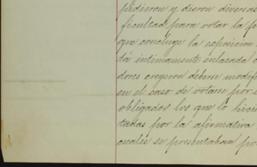 pidieron y dieron diversas
facultad, para votar la fo
que concluye la esposicion
dá intimamente enlazada c
dores creyeron deberse modifi
en el caso de votarse por s
obligados los que lo hicie
tadas por la afirmativa
cuales se presentaban por